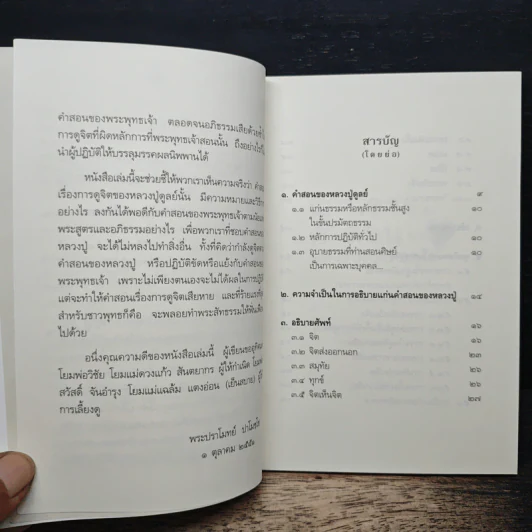 คำสอนของพระพุทธเจ้า ตลอดจนอภิธรรมเสียด้วยซ้ำ
การดูจิตที่ผิดหลักการที่พระพุทธเจ้าสอนนั้น ถึงอย่างไร
นำผู้ปฏิบัติให้บรรลุมรรคผลนิพพานได้
หนังสือเล่มนี้จะช่วยชี้ให้พวกเราเห็นความจริงว่า
เรื่องการดูจิตของหลวงปู่ดูลย์นั้น มีความหมายและวิธี
อย่างไร ลงกันได้พอดีกับคำสอนของพระพุทธเจ้าตาม
พระสูตรและอภิธรรมอย่างไร เพื่อพวกเราที่ชอบคำสอน
หลวงปู่ จะได้ไม่หลงไปทำสิ่งอื่น ทั้งที่คิดว่ากำลังดูจิต
คำสอนของหลวงปู่ หรือปฏิบัติขัดหรือแย้งกับคำสอน
พระพุทธเจ้า เพราะไม่เพียงตนเองจะไม่ได้ผลในการ
แต่จะทำให้คำสอนเรื่องการดูจิตเสียหาย และที่ร้าย
สำหรับชาวพุทธก็คือ จะพลอยทำพระสัทธรรมให้
ไปด้วย
อนึ่งคุณความดีของหนังสือเล่มนี้ ผู้เขียนขอ
โยมพ่อวิชัย โยมแม่ดวงแก้ว สันตยากร ผู้ให้กำเนิด
สวัสดิ์ จันอำรุง โยมแม่แฉล้ม แตงอ่อน (เย็นสบาย)
การเลี้ยงดู
พระปราโมทย์ ปาโมชฺโช
๑ ตุลาคม ๒๕๕๑
สารบัญ
(โดยย่อ)
๑. คำสอนของหลวงปู่ดูลย์ ๙
๑.๑ แก่นธรรมหรือหลักธรรมชั้นสูง ๑๐
ในขั้นปรมัตถธรรม
๑.๒ หลักการปฏิบัติทั่วไป ๑๐
๑.๓ อุบายธรรมที่ท่านสอนศิษย์ ๑๐
เป็นการเฉพาะบุคคล...
๒. ความจำเป็นในการอธิบายแก่นคำสอนของหลวงปู่ ๑๔
๓. อธิบายศัพท์ ๑๖
๓.๑ จิต ๑๖
๓.๒ จิตส่งออกนอก ๒๓
๓.๓ สมุทัย ๒๖
๓.๔ ทุกข์ ๒๖
๓.๕ จิตเห็นจิต ๒๗